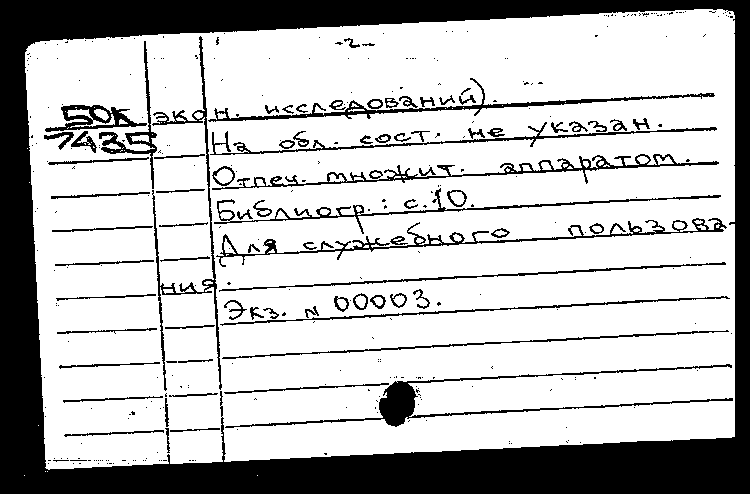 -2-
50К экон. исследований).
7435 На обл. сост. не указан.
Отпеч. множит. аппаратом.
Библиогр.: с.10.
Для служебного пользова-
ния.
Экз. N 00003.